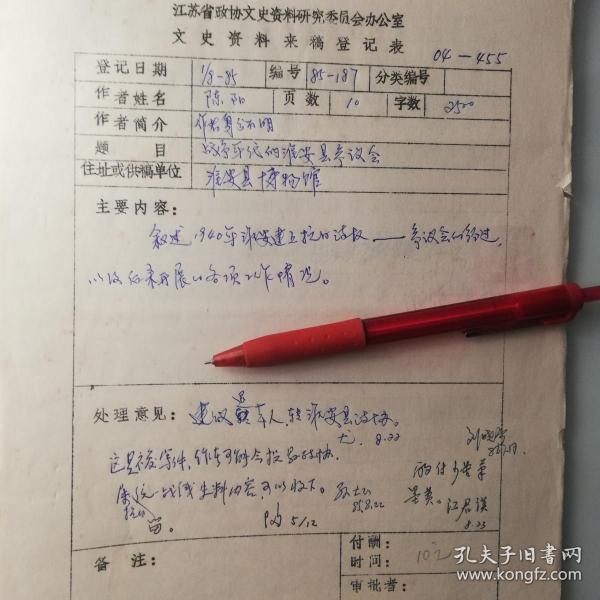 江苏省政协文史资料研究委员会办公室
文史资料来稿登记表
04-455
登记日期 1/8-85 编号 85-187 分类编号
作者姓名 陈阳 页数 10 字数 2500
作者简介 作者身份不明
题目 战争年代的淮安县参议会
住址或供稿单位 淮安县博物馆
主要内容：
叙述1940年淮安建立抗日政权——参议会的经过，
以及后来开展的各项工作情况。
处理意见：建议退本人，转淮安县政协。
8.22
这是复写件，作者可能会投县政协。
史料内容，可以收下。
留。
5/12
8.23
备注：
付酬：
时间：
审批者：
孔夫子旧书网
www.kongfz.com